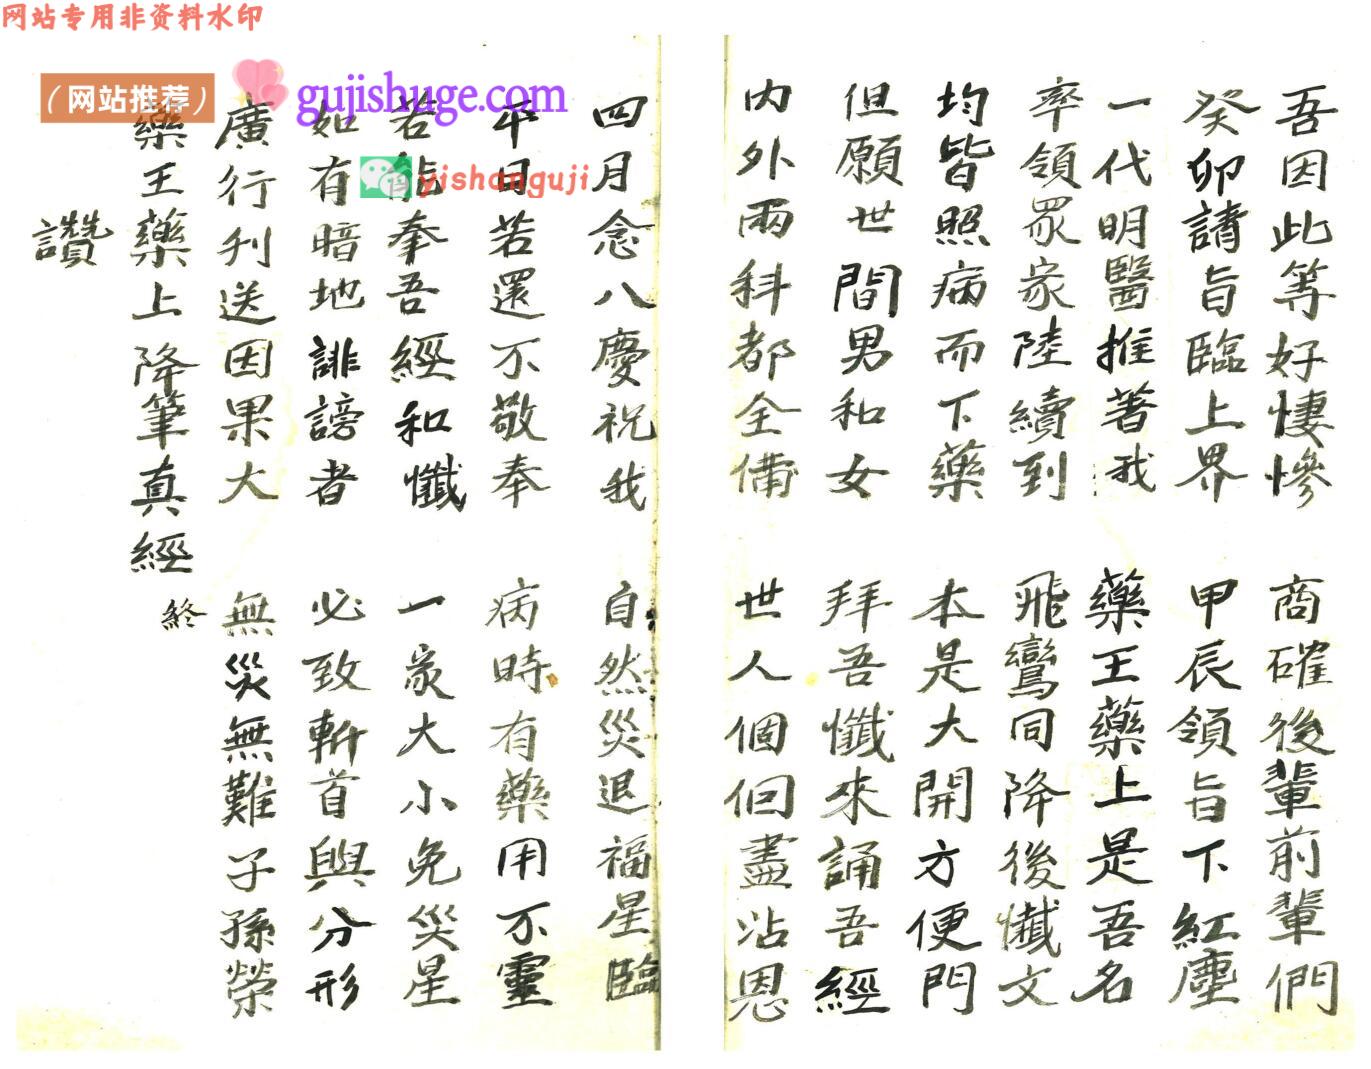 网站专用非资料水印
（网站推荐）
gujishuge.com
yishanguji
吾因此等好悽慘　商確後輩前輩們
癸卯請旨臨上界　甲辰領旨下紅塵
一代明醫推著我　藥王藥上是吾名
率領眾家陸續到　飛鸞同降後懺文
均皆照病而下藥　本是大開方便門
但願世間男和女　拜吾懺來誦吾經
內外兩科都全備　世人個個盡沾恩
四月念八慶祝我　自然災退福星臨
平日若還不敬奉　病時有藥用不靈
若能奉吾經和懺　一家大小免災星
如有暗地誹謗者　必致斬首與分形
廣行刋送因果大　無災無難子孫榮
藥王藥上降筆真經　終
讚